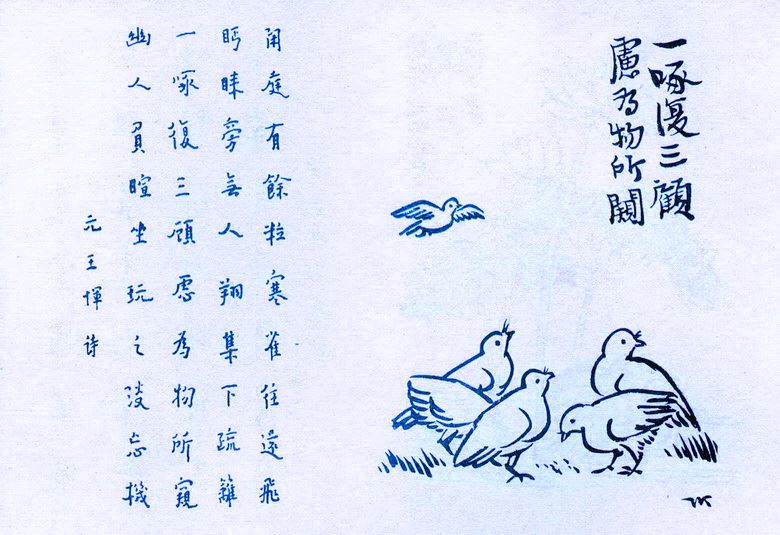 一啄復三顧
慮為物所闚
閒庭有餘粒寒雀往還飛
眄睞旁無人翔集下疏籬
一啄復三顧慮為物所窺
幽人負暄坐玩之淡忘機
元王惲詩
TK